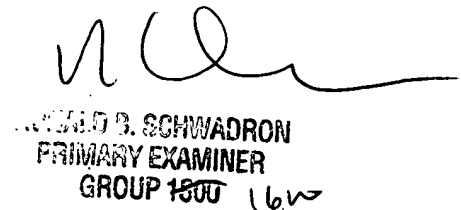 B. SCHWADRON
PRIMARY EXAMINER
GROUP 1800 1600